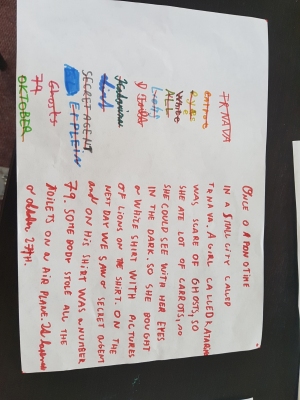 TRNAVA
CARROT
EYES
WHITE
ALL
LIGHT
Katarína
SHIRT
SECRET AGENT
AIRPLANE
Ghosts
79
OKTOBER
ONCE UPON A TIME
IN A SMALL CITY CALLED
TRNAVA. A GIRL CALLED KATARÍNA
WAS SCARE OF GHOSTS, SO
SHE ATE LOT OF CARROTS, SO
SHE COULD SEE WITH HER EYES
IN THE DARK. SO SHE BOUGHT
a WHITE SHIRT WITH PICTURES
OF LIONS ON THE SHIRT. ON THE
NEXT DAY WE SAW a SECRET AGENT
and ON HIS SHIRT WAS a NUMBER
79. SOMEBODY STOLE ALL THE
TOILETS ON a AIR PLANE.
27th.